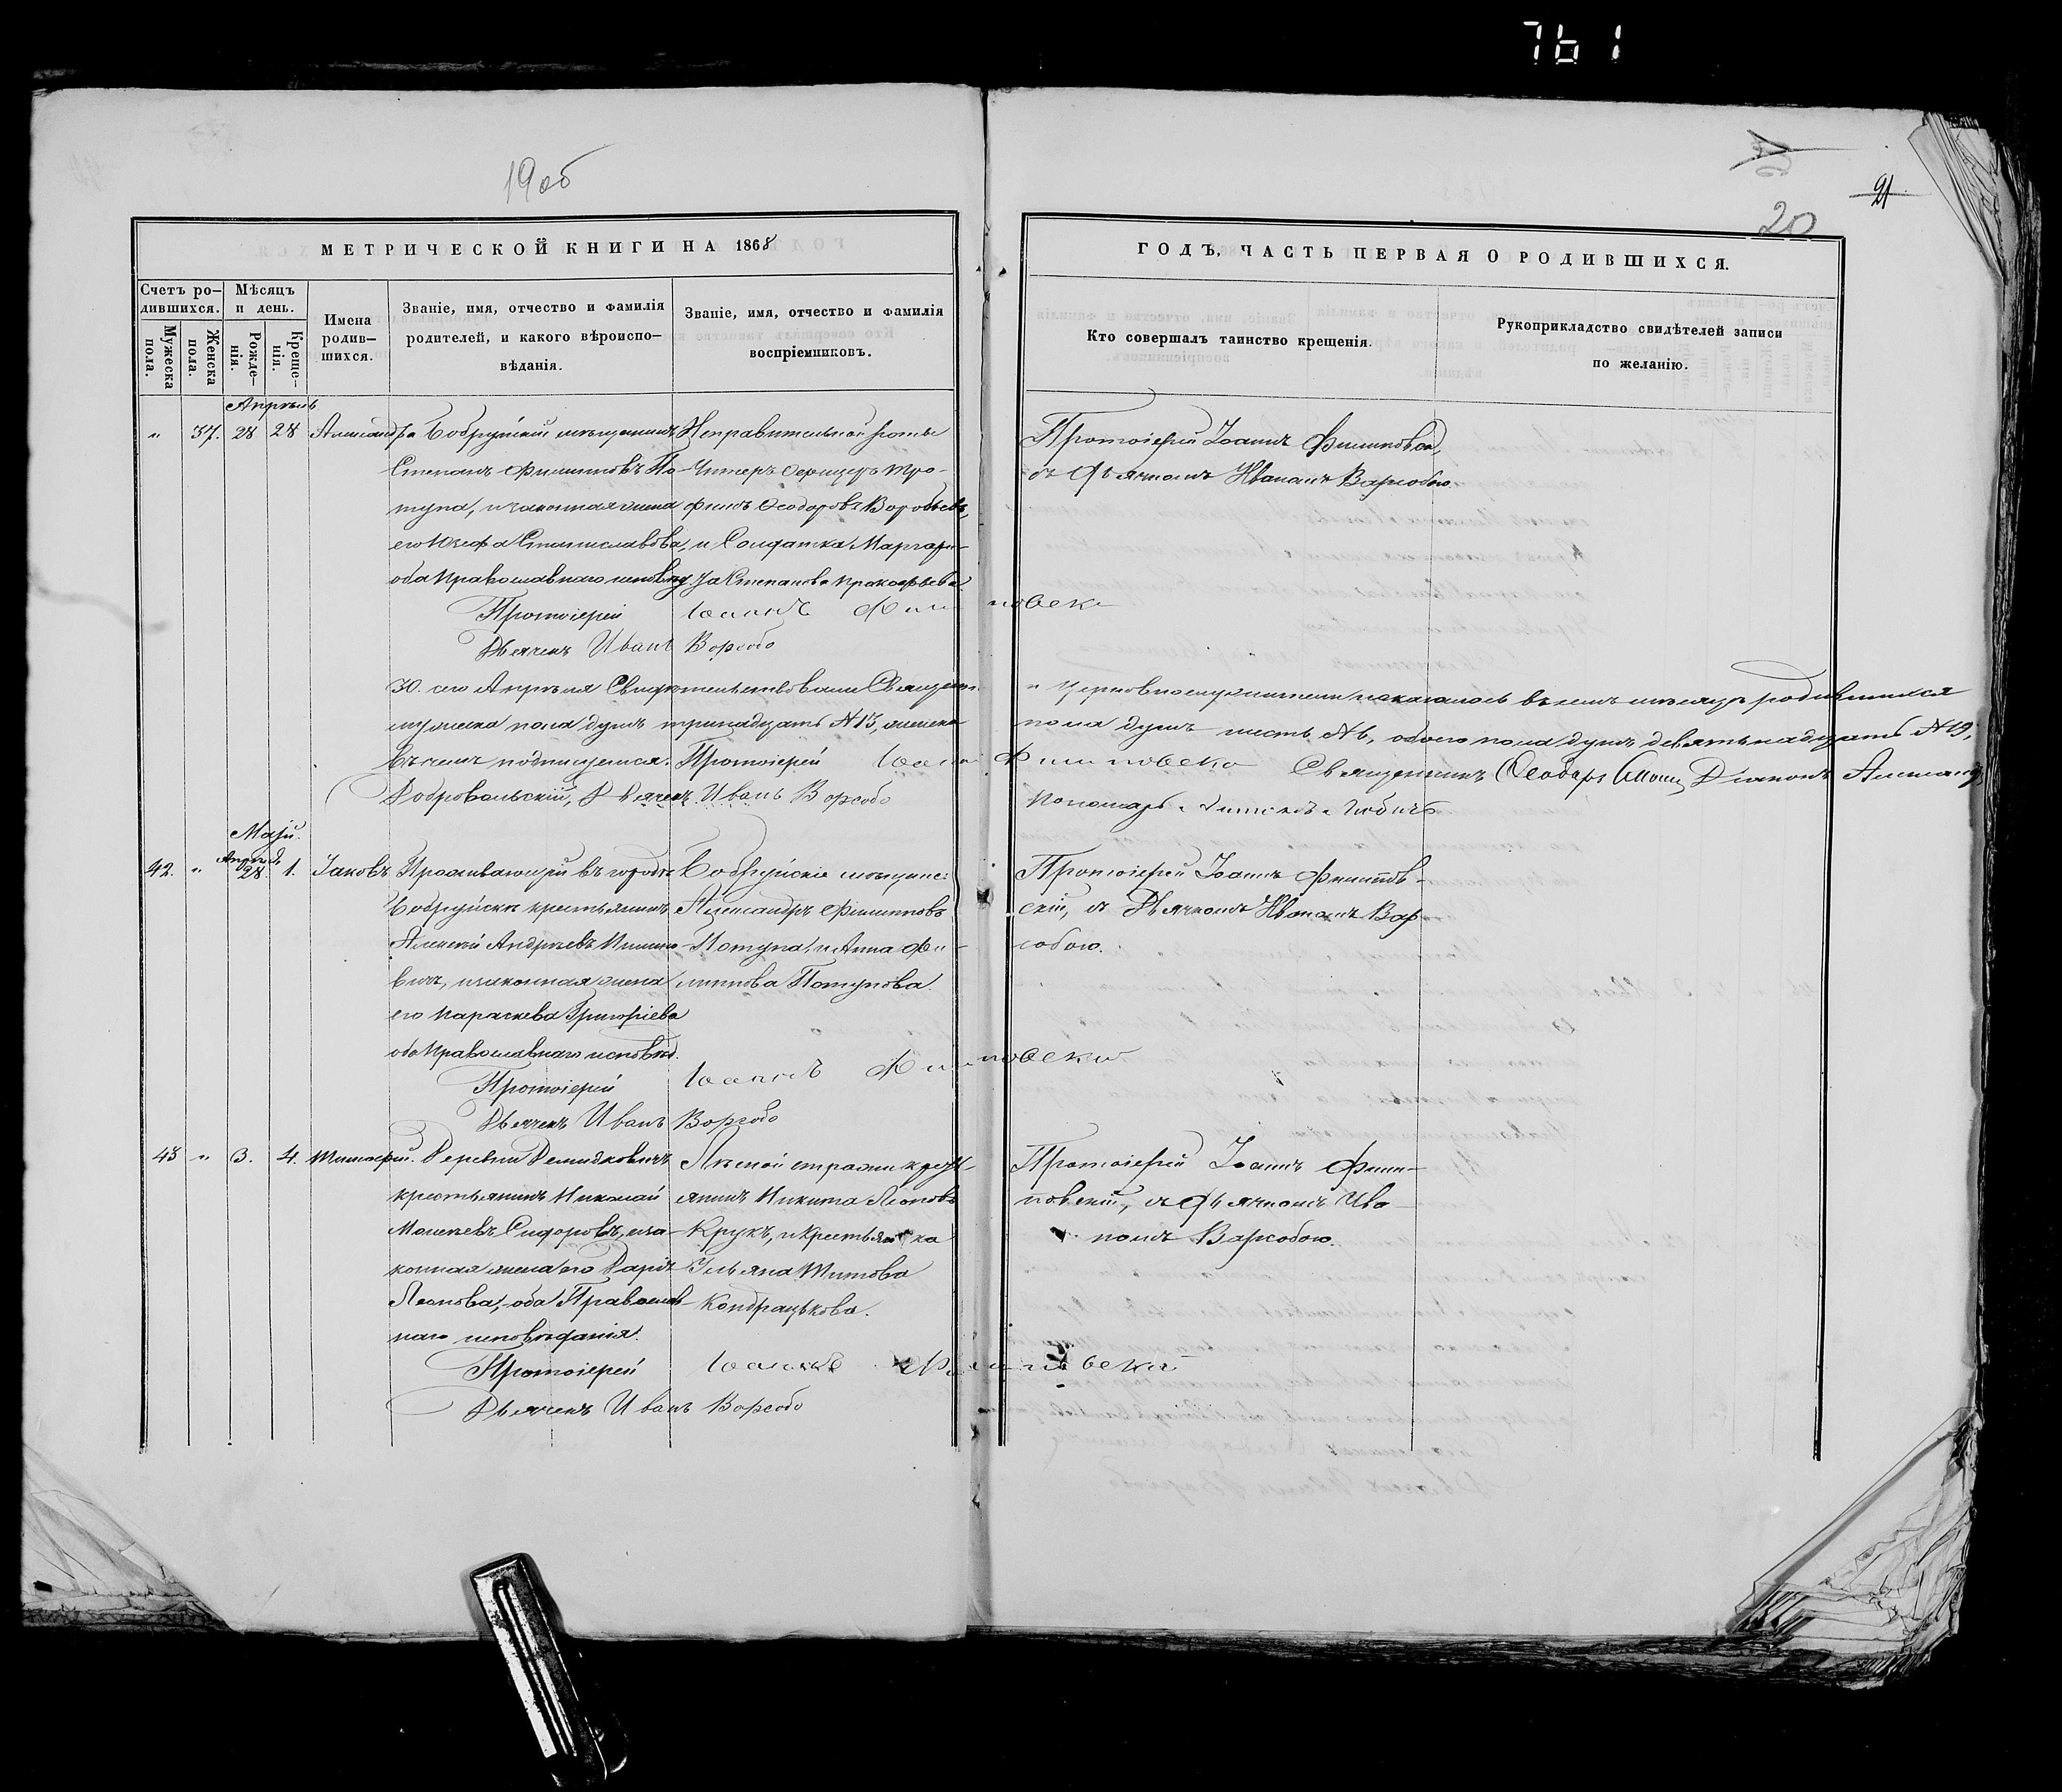 761
19 об
21
20
МЕТРИЧЕСКОЙ КНИГИ НА 1868
ГОДЪ, ЧАСТЬ ПЕРВАЯ О РОДИВШИХСЯ.
Счетъ ро-
дившихся.
Мужеска
пола.
Женска
пола.
Мѣсяцъ
и день.
Рожде-
нія.
Креще-
нія.
Имена
родив-
шихся.
Званіе, имя, отчество и фамилія
родителей, и какого вѣроиспо-
вѣданія.
Званіе, имя, отчество и фамилія
воспріемниковъ.
Кто совершалъ таинство крещенія.
Рукоприкладство свидѣтелей записи
по желанію.
Апрѣль
" 37. 28 28 Александра
Бобруйскій мѣщанинъ
Степанъ Филипповъ По-
тупа, и законная жена
его Юзефа Станиславова,
оба Православнаго исповѣд.
Исправительной роты
Унтеръ Офицеръ Тро-
фимъ Ѳеодоровъ Воробьевъ,
и Солдатка Маргари-
та Степанова Прокофьева.
Протоіерей Іоаннъ Филиповскій,
съ Дьячкомъ Иваномъ Варсобою.
Протоіерей Іоаннъ Филиповскій
Дьячекъ Иванъ Ворсобо
30. сего Апрѣля Свидѣтельствовали Священно
и церковнослужители показалось въ семъ мѣсяцѣ родившихся
мужеска пола душъ тринадцать №13, женска
пола душъ шесть №6, обоего пола душъ девятьнадцать №19,
въ чемъ подписуемся. Протоіерей Іоаннъ Филиповскій Священникъ Ѳеодоръ Діаконъ
Добровольскій, Дьячекъ Иванъ Ворсобо
Пономарь
Маій.
42. " Апрѣль 28 1. Іаковъ
Проживающій въ городѣ
Бобруйскѣ крестьянинъ
Алексѣй Андреевъ
вичъ, и законная жена
его Параскева Григоріева
оба Православнаго исповѣд.
Бобруйскіе мѣщане:
Александръ Филипповъ
Потупа, и Анна Фи-
липпова Потупова.
Протоіерей Іоаннъ Филиппов-
скій, съ Дьячкомъ Иваномъ Вар-
собою.
Протоіерей Іоаннъ Филиповскій
Дьячекъ Иванъ Ворсобо
43 " 3. 4. Тимофей.
Деревни Демидковичъ
крестьянинъ Николай
Сидоровъ, и за-
конная жена его Дарія
Леонова, оба Православ-
наго исповѣданія.
Лѣсной стражи кресть-
янинъ Никита Леоновъ
Крукъ, и крестьянка
Ульяна Титова
Кондрацькова.
Протоіерей Іоаннъ Фили-
повскій, съ Дьячкомъ Ива-
номъ Варсобою.
Протоіерей Іоаннъ Филиповскій
Дьячекъ Иванъ Ворсобо